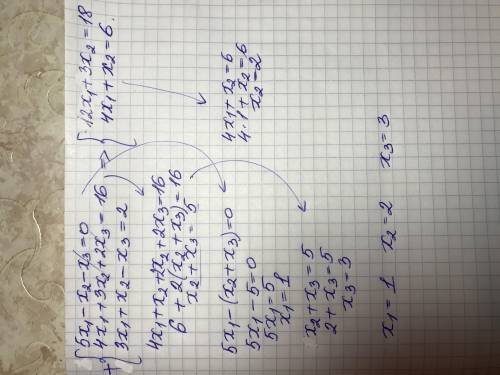 5x₁-x₂-x₃=0
4x₁+3x₂+2x₃=16
3x₁+x₂-x₃=2
=>
12x₁+3x₂=18
4x₁+x₂=6.
4x₁+x₂+2x₂+2x₃=16
6+2(x₂+x₃)=16
x₂+x₃=5
4x₁+x₂=6
4·1+x₂=6
x₂=2
5x₁-(x₂+x₃)=0
5x₁-5=0
5x₁=5
x₁=1
x₂+x₃=5
2+x₃=5
x₃=3
x₁=1 x₂=2 x₃=3